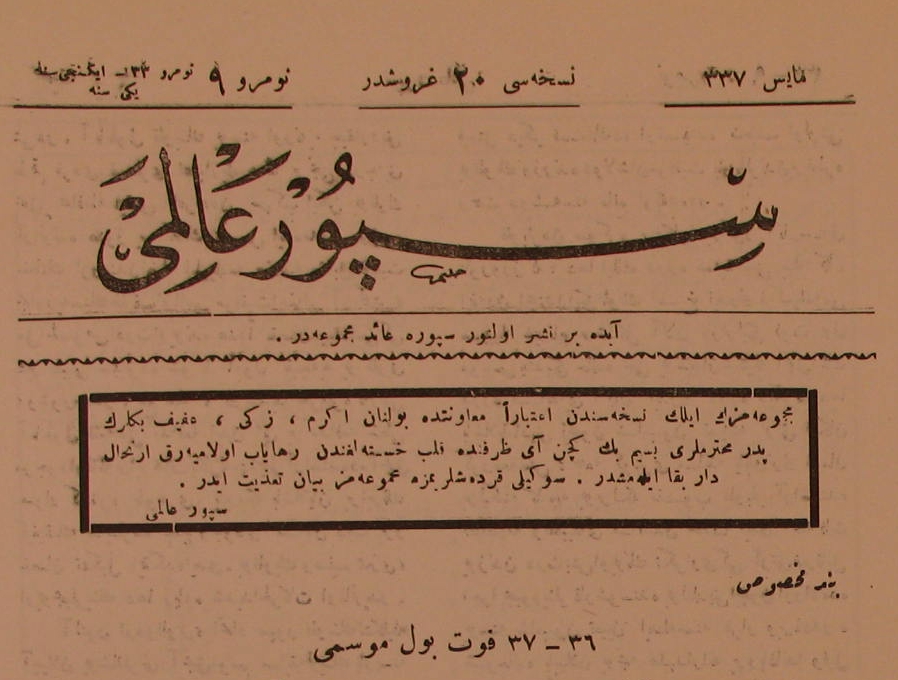 مایس ٣٣٧
نسخه‌سی ٢٠ غروشدر
نومرو ٩ نومرو ٣٣ـ ایكنجی سنه
یكی سنه
سپور عالمی
آیده بر نشر اولنور سپوره عائد مجموعه‌در .
مجموعه‌مزك ایلك نسخه‌سندن اعتباراً معاونتده بولنان اكرم ، زكی ، عفیف بكلرك
پدر محترملری بسیم بك كچن آی ظرفنده قلب خسته‌لغندن رهایاب اولامیه‌رق ارتحال
دار بقا ایله‌مشدر . سوكیلی قرده‌شلریمزه مجموعه‌مز بیان تعزیت ایدر .
سپور عالمی
بند مخصوص
٣٦ ــ ٣٧ فوت بول موسمی